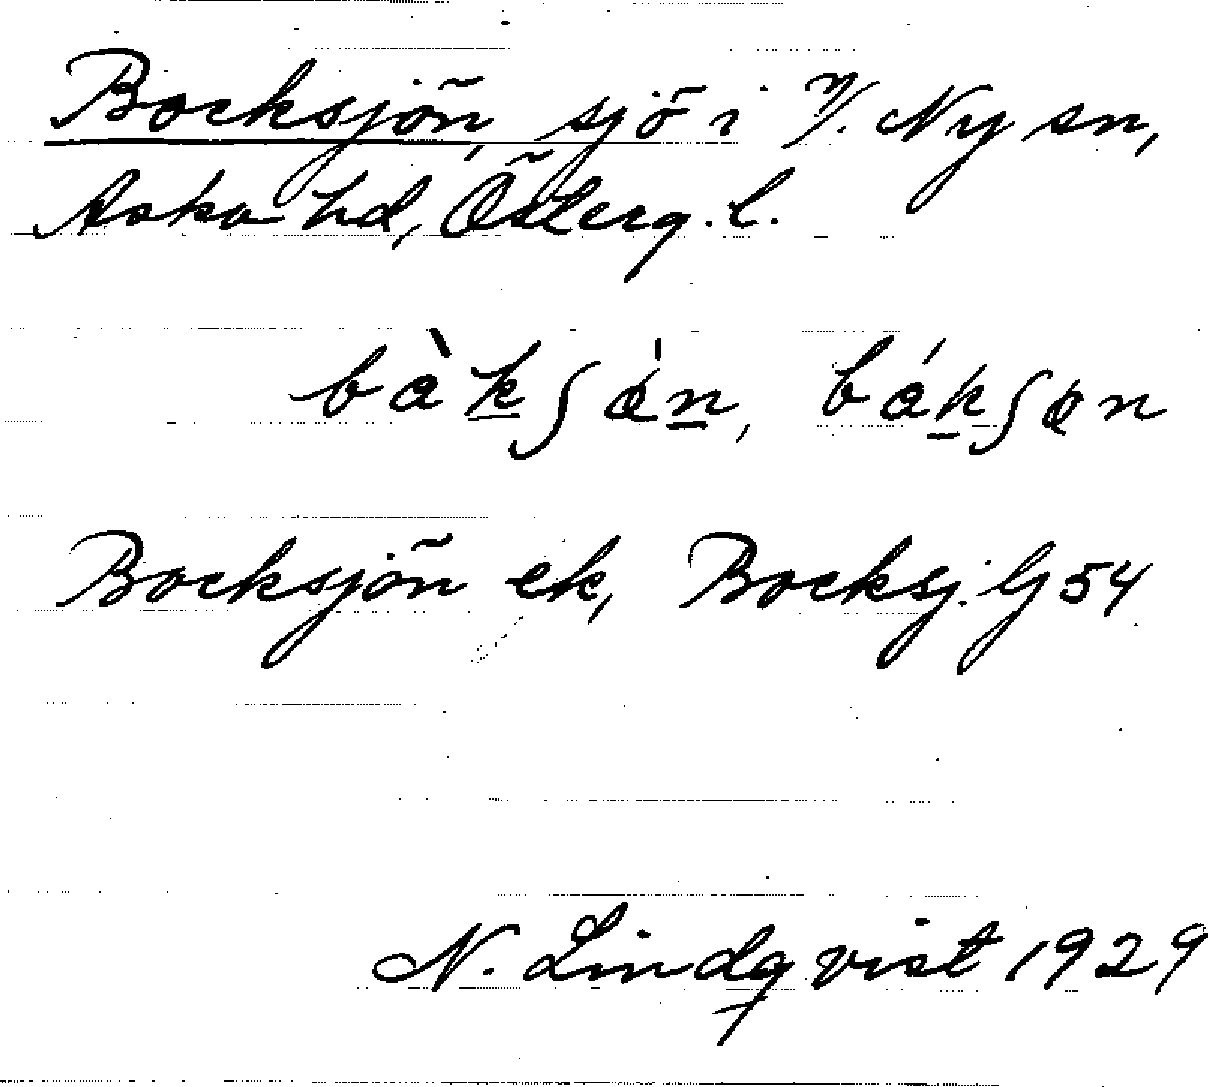 Bocksjön, sjö i V. Ny sn,
Aska hd, Österg. l.
bàkʃø̀n, bákʃøn
Bocksjön ek, Bocksj. G 54
N. Lindqvist 1929